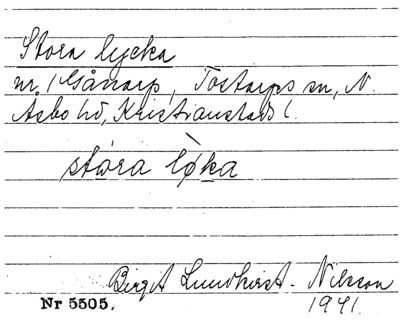 Stora lycka
nr. 1 Gånarp, Tostarps sn, N.
Asbo hd, Kristianstads l.
stóra lø̀ka
Birgit Lundkvist - Nilsson
Nr 5505. 1941.